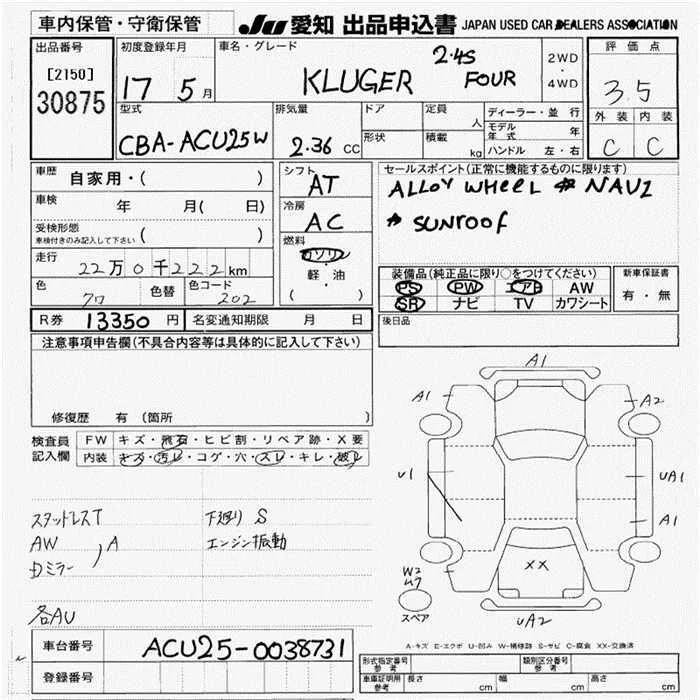 車内保管・守衛保管
JU 愛知 出品申込書 JAPAN USED CAR DEALERS ASSOCIATION
出品番号
[2150]
30875
初度登録年月
17 5月
車名・グレード
KLUGER 2.4S FOUR
2WD
・
4WD
評価点
3.5
外装 内装
C C
型式
CBA-ACU25W
排気量
2.36 CC
ドア
形状
定員 人
積載 kg
ディーラー・並行
モデル年式 年
ハンドル 左・右
車歴 自家用・( )
車検 年 月( 日)
受検形態
車検付きのみ記入して下さい ( )
走行 22万0千222km
色 クロ
色替
色コード 202
シフト
AT
冷房
AC
燃料
ガソリン
軽・油
( )
セールスポイント(正常に機能するものに限ります)
ALLOY WHEEL * NAVI
* SUNROOF
装備品(純正品に限り○をつけてください)
PS PW エアB AW
SR ナビ TV カワシート
新車保証書
有・無
後日品
R券 13350 円
名変通知期限 月 日
注意事項申告欄(不具合内容等は具体的に記入して下さい)
修復歴 有 (箇所 )
検査員
記入欄
FW キズ・飛石・ヒビ割・リペア跡・X要
内装 キズ・汚レ・コゲ・穴・スレ・キレ・破レ
スタッドレスT
AW
Dミラー
A
各AU
下廻り S
エンジン振動
A1
A1
A2
U1
UA1
A1
XX
W2
スペア
UA2
A-キズ E-エクボ U-凹み W-補修跡 S-サビ C-腐食 XX-交換済
車台番号 ACU25-0038731
登録番号
形式指定番号
参考
類別区分番号
参考
車庫証明用
参考
長さ cm
幅 cm
高さ cm